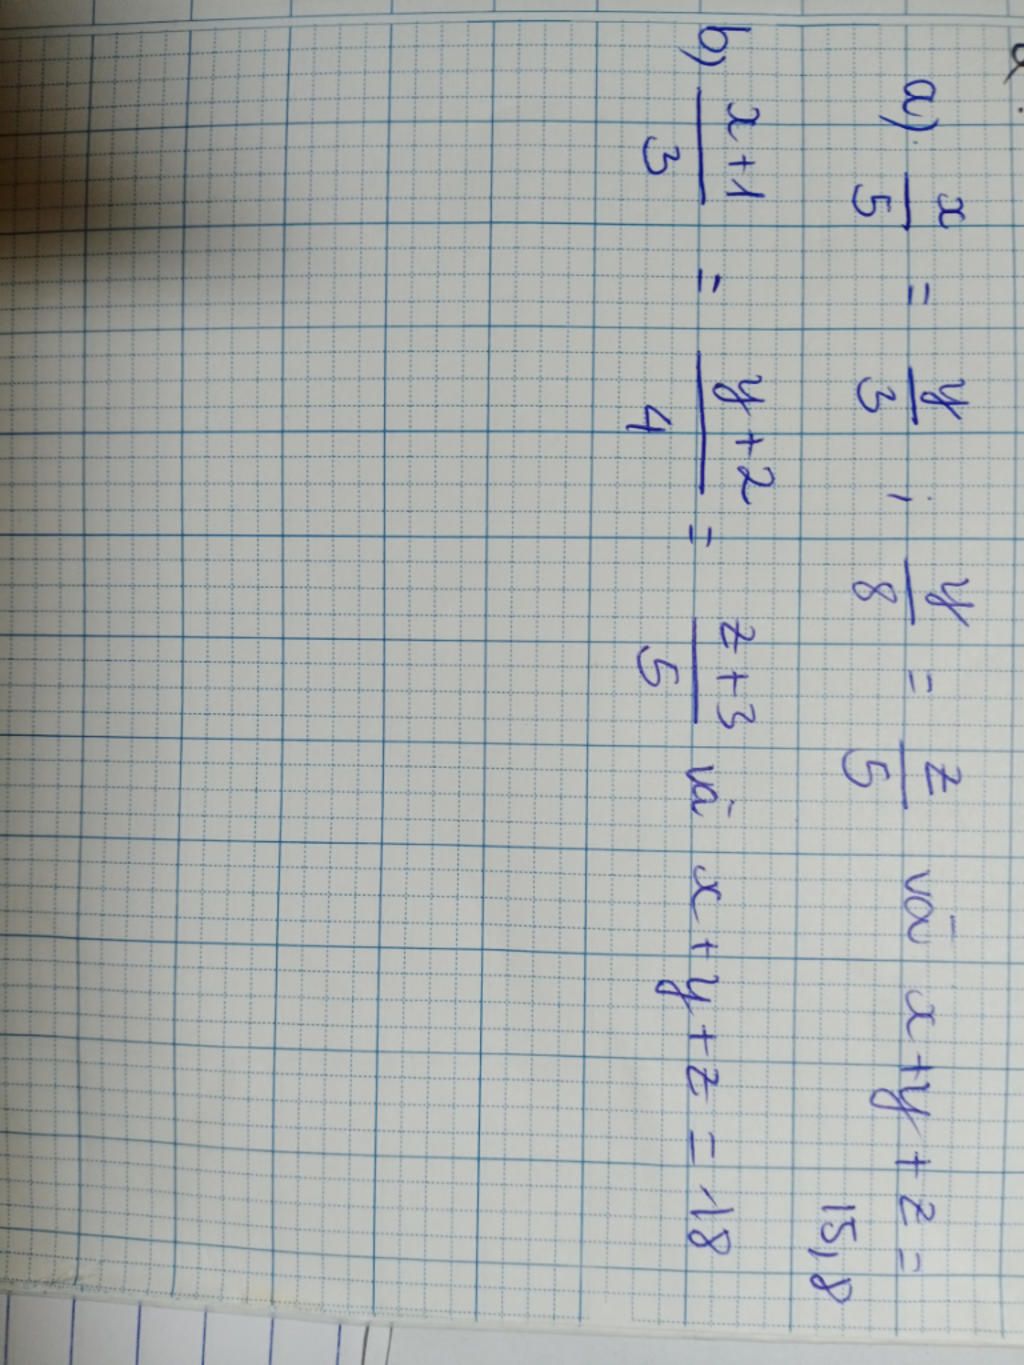 a) x/5 = y/3 ; y/8 = z/5 và x + y + z =
15,8
b) (x+1)/3 = (y+2)/4 = (z+3)/5 và x + y + z = 18